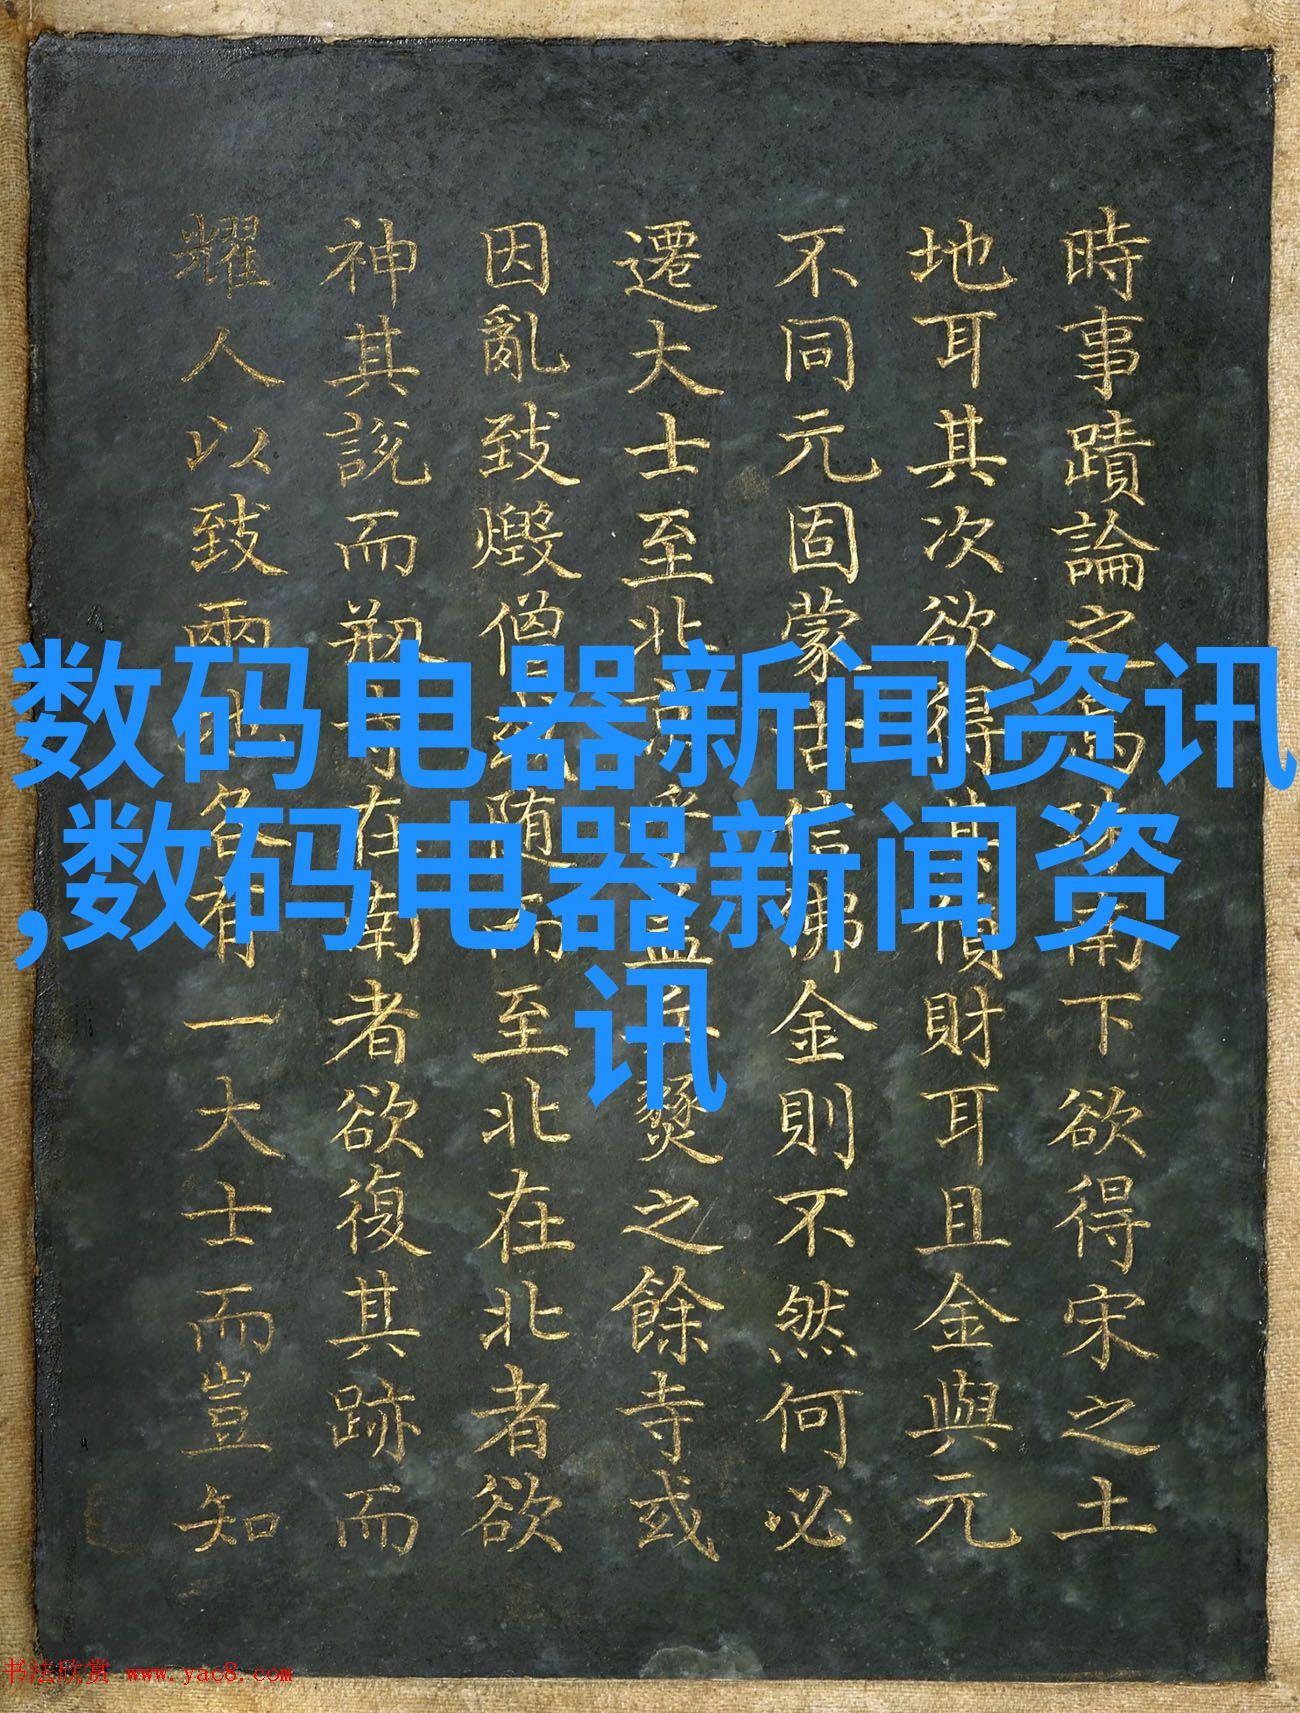 時事蹟論之南下欲得宋之土
地耳其次欲得其財耳且金與元
不同元固蒙古信佛金則不然何必
遷大士至北京乎蓋兵燹之餘寺或
因亂致燬僧或隨而至北在北者欲
神其說而剏寺在南者欲復其跡而
耀人以致兩地各有一大士而豈知
数码电器新闻资讯
,数码电器新闻资
讯
书法欣赏 www.yac8.com